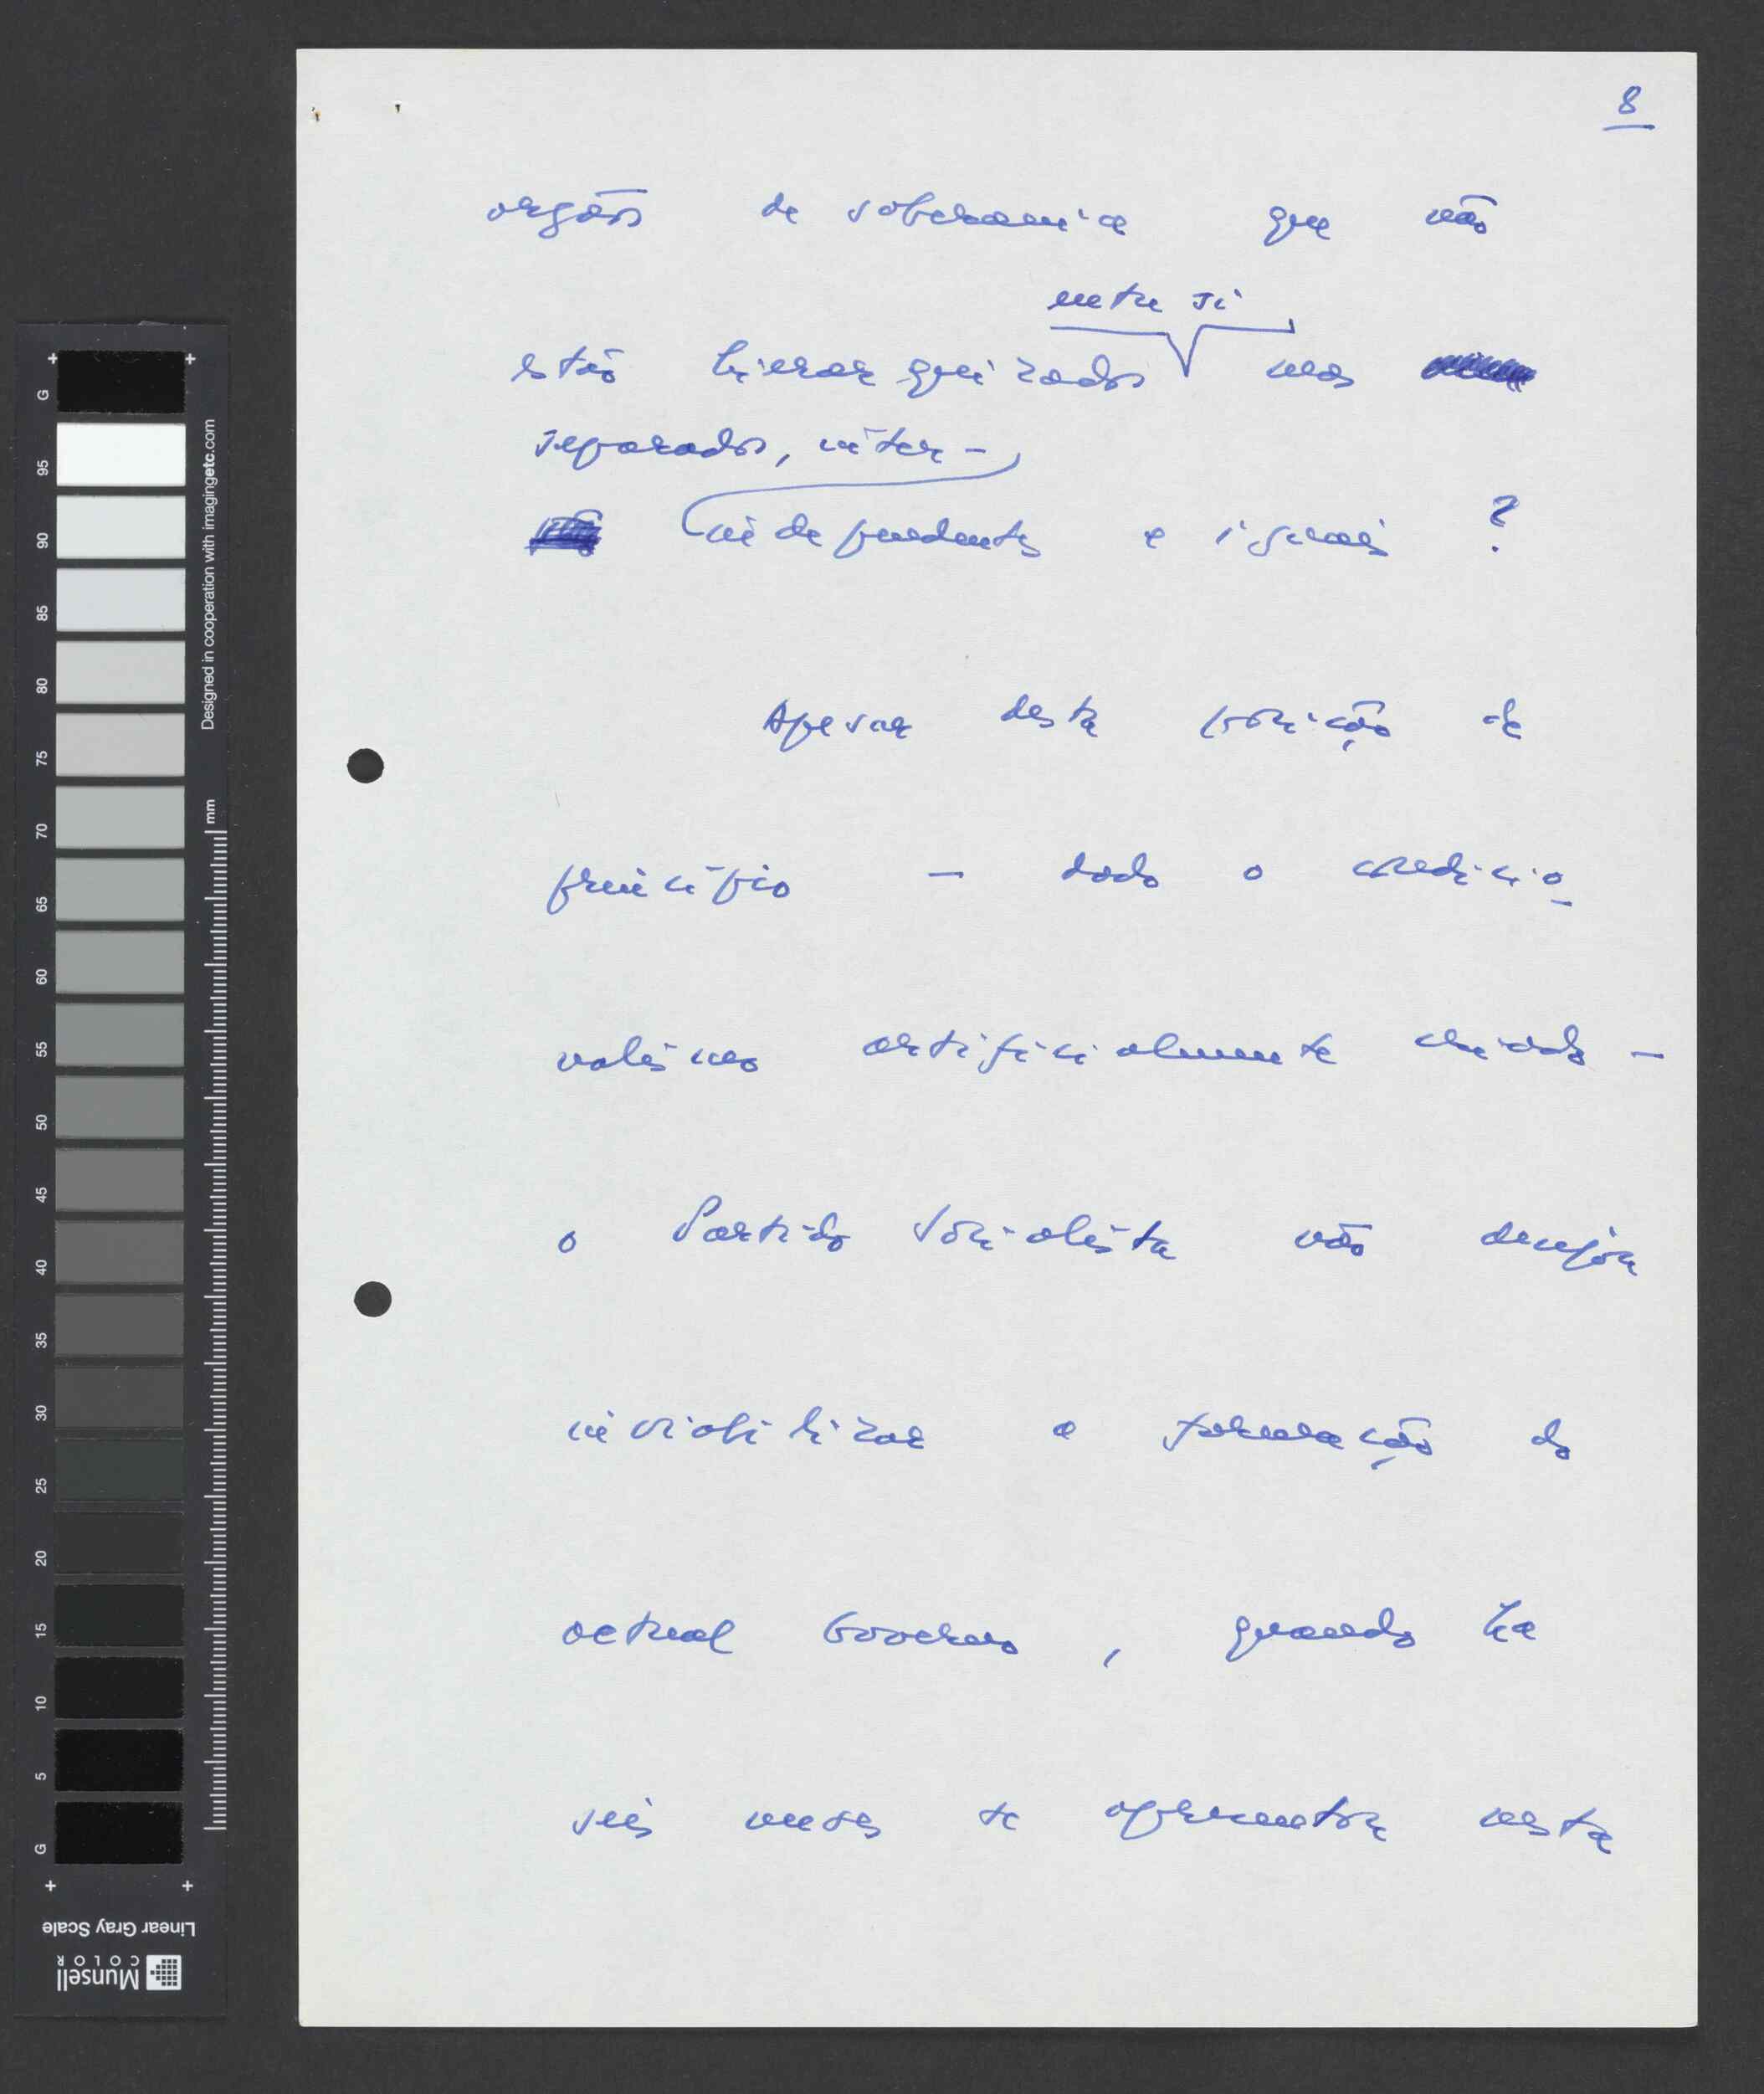 8
orgãos de soberania que não
entre si
estão hierarquizados mas
separados, inter-
independentes e iguais ?
Apesar desta posição de
princípio — dado o condicio
nalismo artificialmente criado —
o Partido Socialista não desejou
inviabilizar a formação do
actual Governo, quando há
seis meses se apresentou nesta
G
95
90
85
80
75
70
65
60
55
50
45
40
35
30
25
20
15
10
5
G
Designed in cooperation with imagingetc.com
mm
Linear Gray Scale
Munsell
COLOR